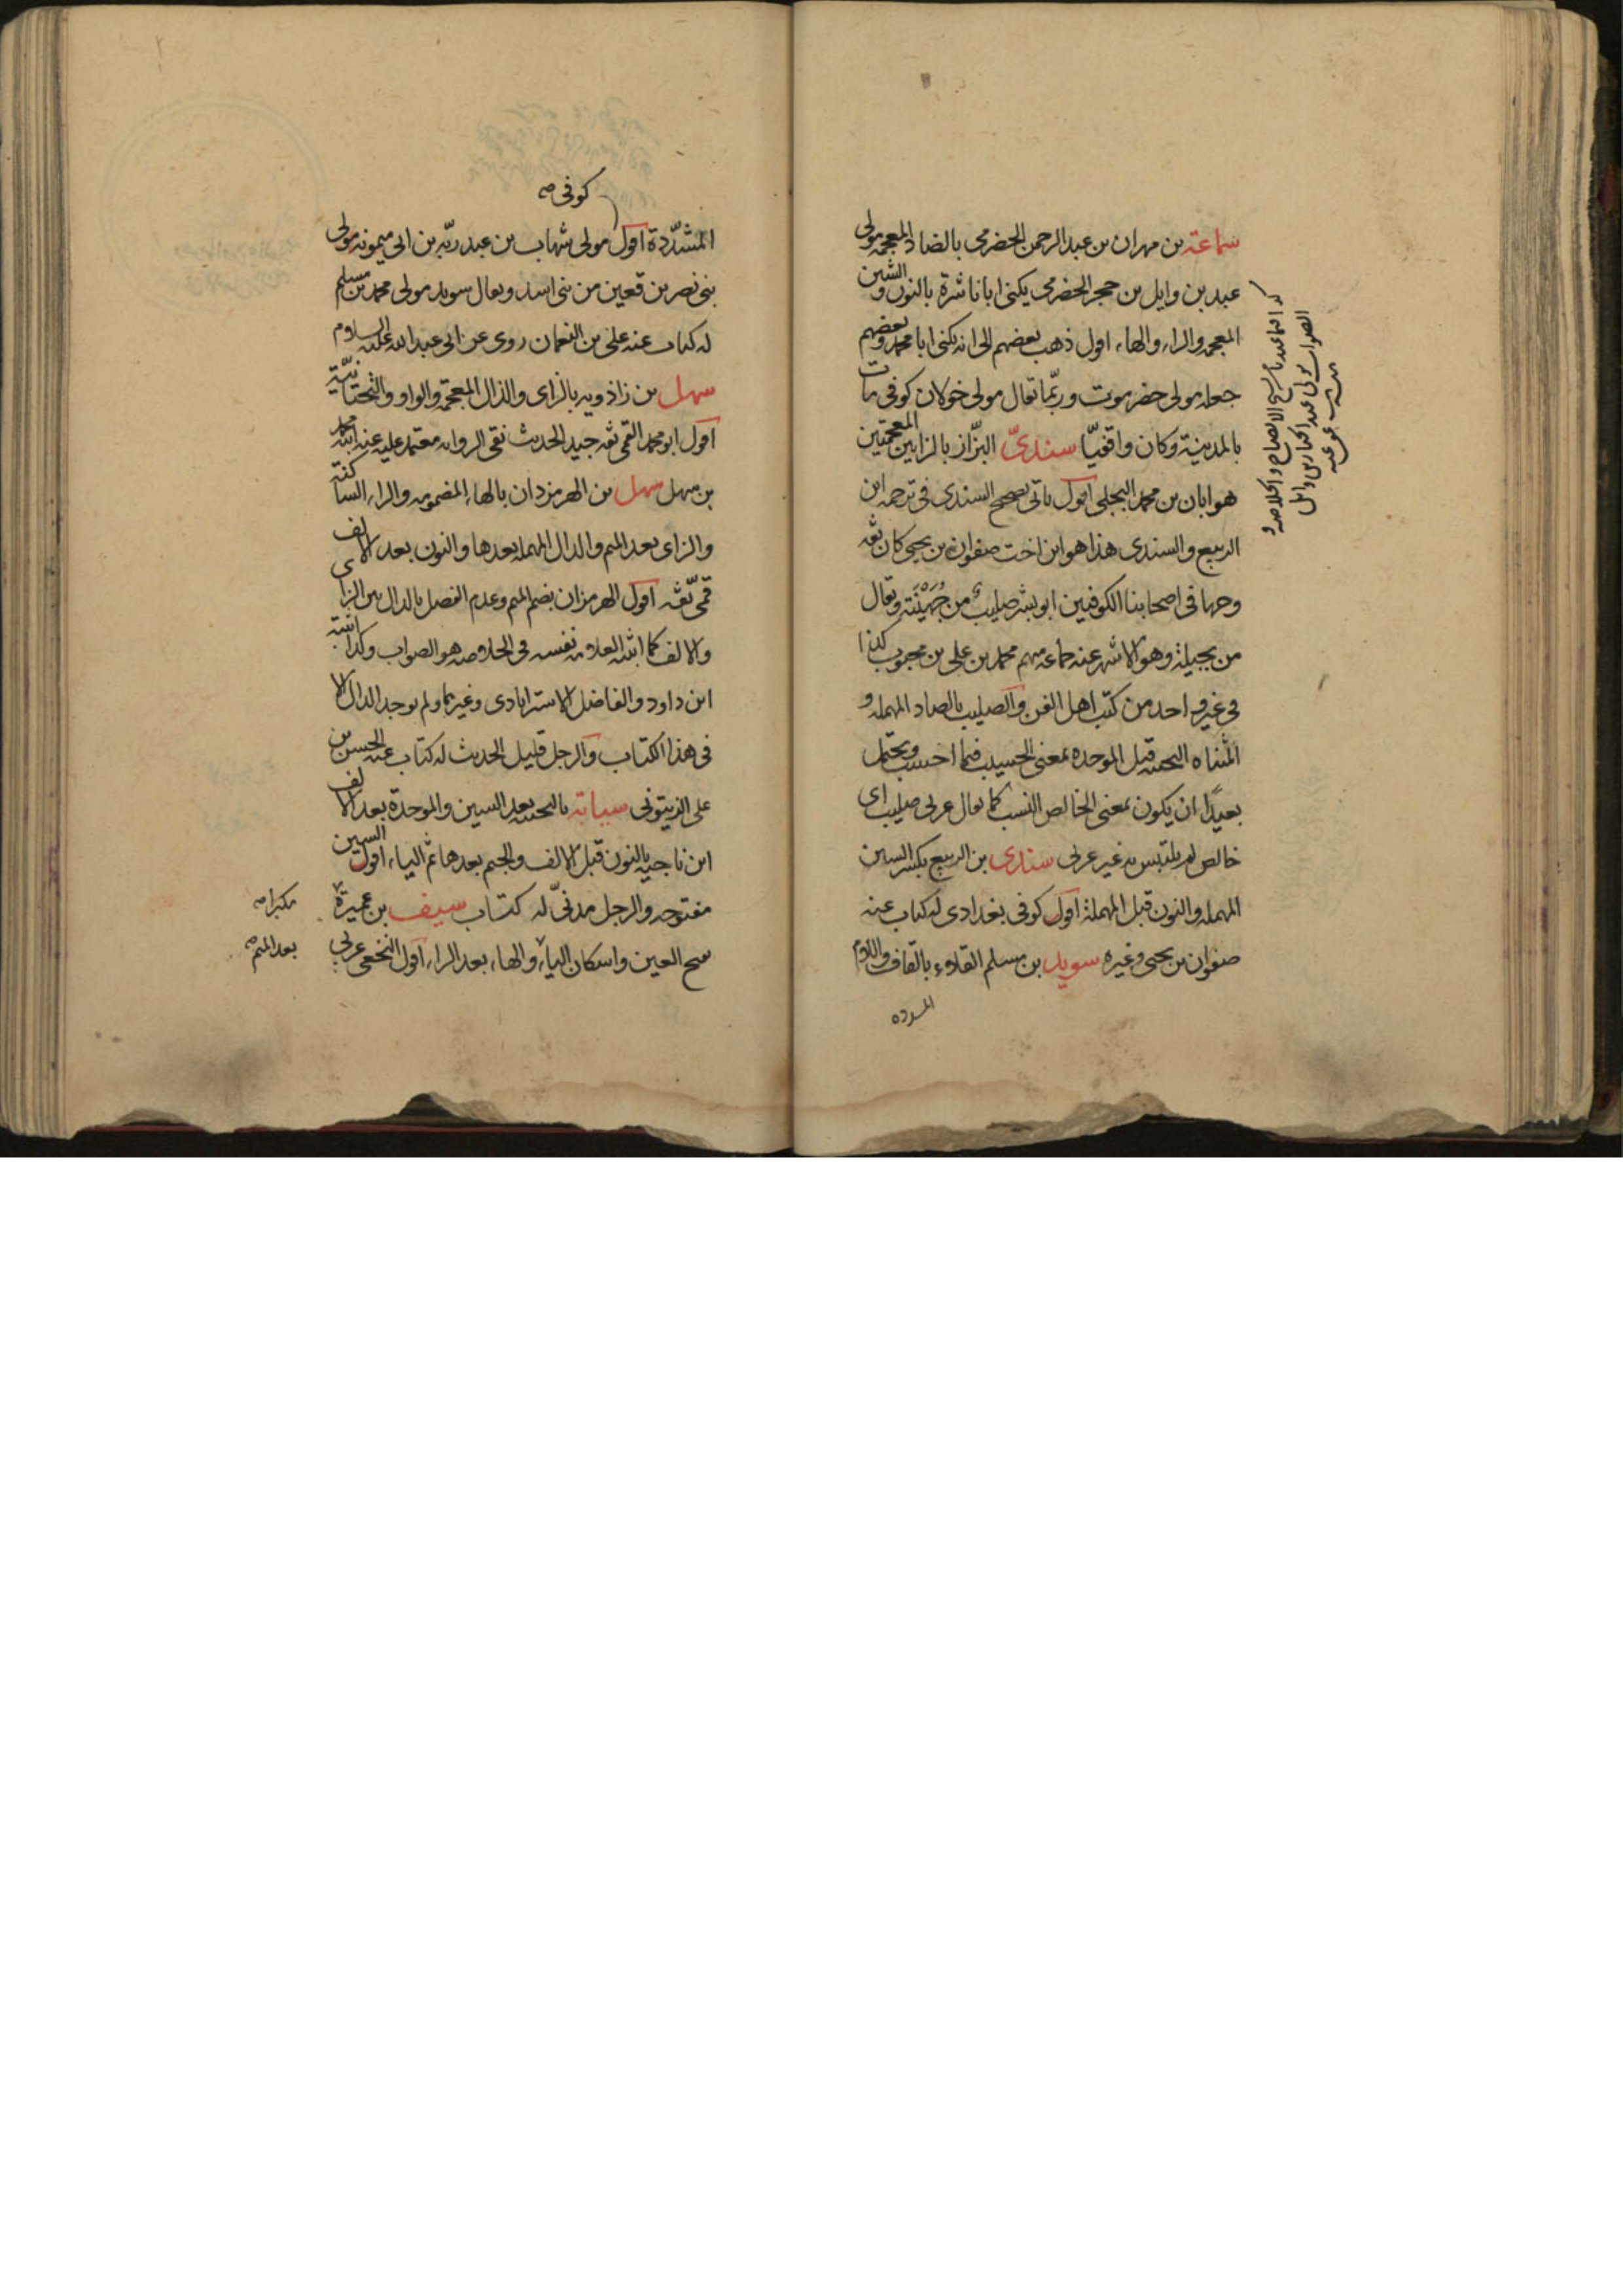 سماعة بن مهران بن عبد الرحمن الحضرمى بالضاد المعجمه مولى
عبد بن وايل بن حجر الحضرمى يكنى ابا ناشرة بالنون والشين
المعجمه والراء والهاء اقول ذهب بعضهم الى انه يكنى ابا محمد وبعضهم
جعله مولى حضرموت وربّما تقال مولى خولان كوفى مات
بالمدينة وكان واقفيّا سندىّ البزّاز بالزايين المعجمتين
هو ابان بن محمد البجلى اقول ياتى تصحيح السندى فى ترجمه ابن
الربيع والسندى هذا هو ابن اخت صفوان بن يحيى كان ثقه
وجها فى اصحابنا الكوفيين ابو بشر صليب من جُهَيْنَة وتقال
من بجيلة وهو الاشهر عنه جماعه منهم محمد بن على بن محبوب كذا
فى غير واحد من كتب اهل الفن والصليب بالصاد المهمله و
المثناه التحتيه قبل الموحده بمعنى الحسيب فيما احسب ويحتمل
بعيدًا ان يكون بمعنى الخالص النسب كما يقال عربى صليب اى
خالص لم يلتبس به غير عربى سندى بن الربيع بكسر السين
المهمله والنون قبل المهملة اقول كوفى بغدادى له كتاب عنه
صفوان بن يحيى وغيره سويد بن مسلم القلاء بالقاف واللام
المشدده
الصواب مولى عبد الجبار بن وايل
كوفى صح
المشدّدة اقول مولى شهاب بن عبد ربّه بن ابى ميمونه مولى
بنى نصر بن قعين من بنى اسد ويقال سويد مولى محمد بن مسلم
له كتاب عنه على بن النعمان روى عن ابى عبد الله عليه السلام
سهل بن زاذويه بالزاى والذال المعجمة والواو والتحتانيّة
اقول ابو محمد القمى ثقه جيد الحديث نقى الروايه معتمد عليه عنه ابنه محمد
بن سهل سهل بن الهرمزدان بالهاء المضمومه والراء الساكنة
والزاى بعد الميم والدال المهمله بعدها والنون بعد الالف
قمى ثقه اقول الهرمزان بضم الميم وعدم الفصل بالدال بين الزاى
والالف كما اثبته العلامه نفسه فى الخلاصه هو الصواب وكذا اثبته
ابن داود والفاضل الاسترابادى وغيرهما ولم يوجد الدال الا
فى هذا الكتاب والرجل قليل الحديث له كتاب عنه الحسن بن
على الزيتونى سيابة بالتحتيه بعد السين والموحدة بعد الالف
ابن ناجيه بالنون قبل الالف والجيم بعدها ثم الياء اقول السين
مفتوحه والرجل مدنىّ له كتاب سيف بن عميرة
مكبرا صح
بفتح العين واسكان الياء والهاء بعد الراء اقول النخعى عربى
بعد الميم صح